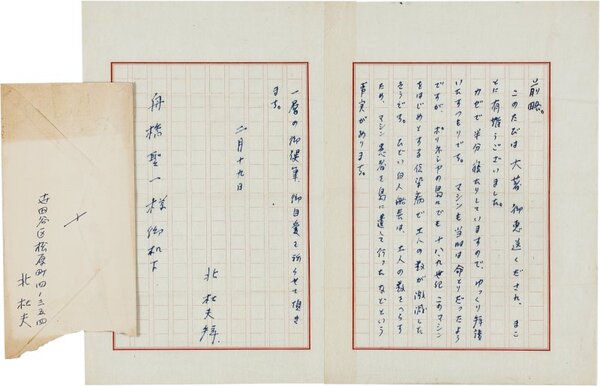 前略。
このたびは大著御恵送くだされ、まこ
とに有難うございました。
カゼで半分寝たりしていますので、ゆっくり拝読
いたすつもりです。マシンも当時は命とりだったよう
ですが、ポリネシアの島々でも十八、九世紀このマシン
をはじめとする伝染病で土人の数が激減した
そうです。ひどい白人船長は、土人の数をへらす
ため、マシン患者を島に遺して行ったなどという
事実があります。
一層の御健筆、御自愛を祈らせて頂き
ます。
二月十九日
北杜夫拝
舟橋聖一様御机下
世田谷区松原町四ノ三五四
北杜夫